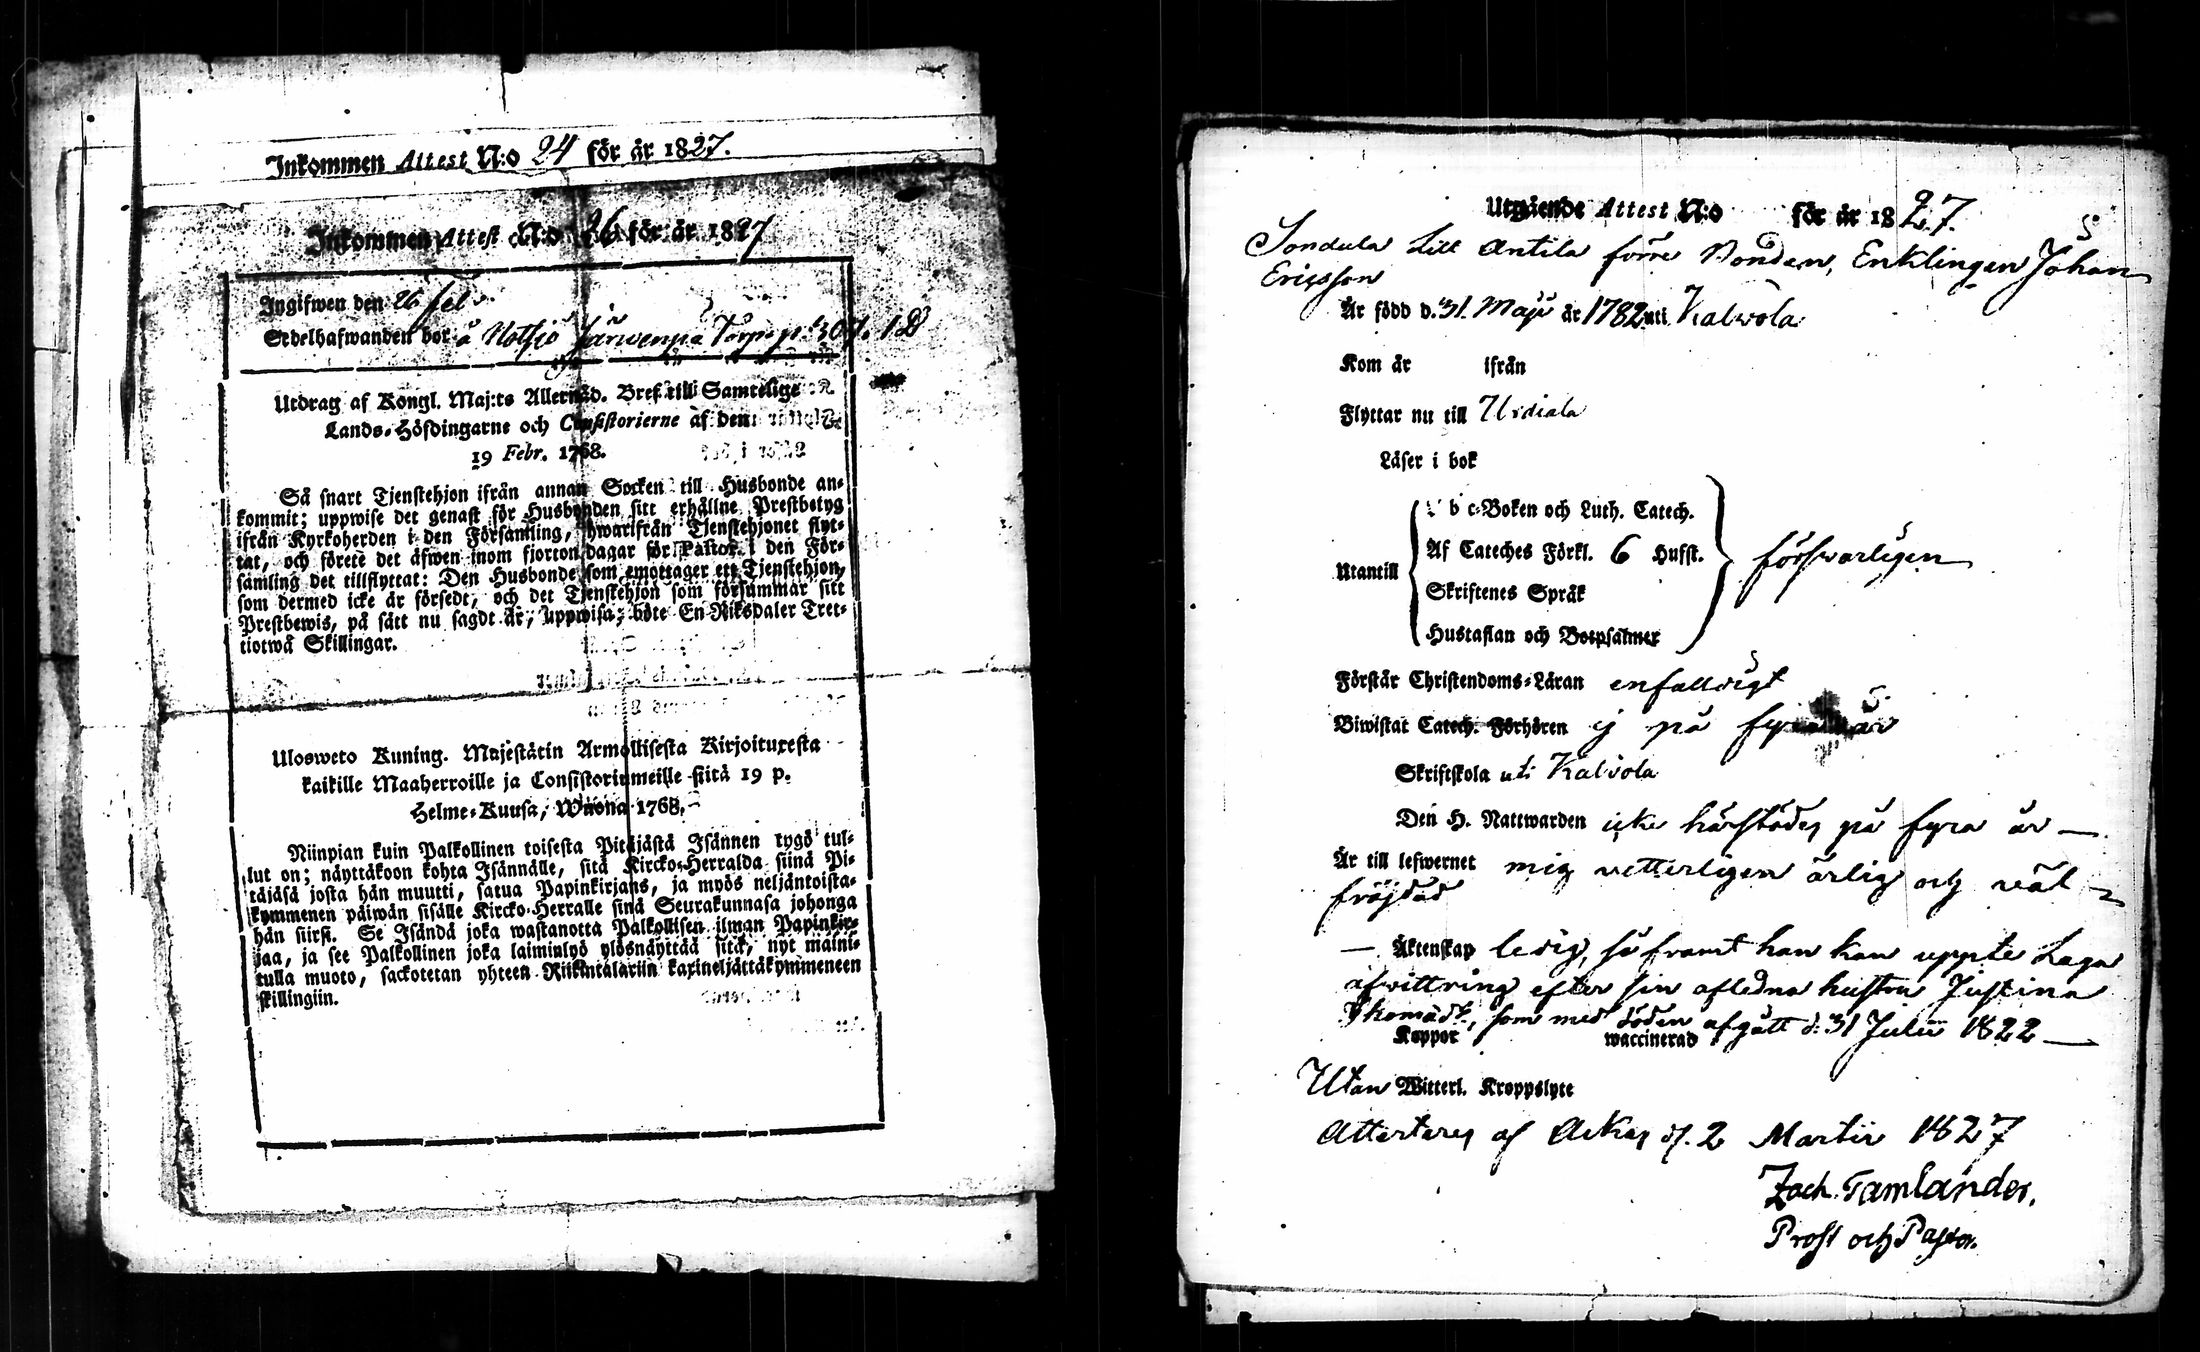 Inkommen Attest N:o 24 för år 1827.
Inkommen Attest N:o 26 för år 1827
Ingifwen den 26 feb
Sedelhafwanden bor å Notsjö Järwenpä Torp p. 307.
Utdrag af Kongl. Maj:ts Allernåd. Bref till Samtelige
Lands-Höfdingarne och Consistorierne af den
19 Febr. 1768.
Så snart Tjenstehjon ifrån annan Socken till Husbonde an-
kommit; uppwise det genast för Husbonden sitt erhållne Prestbetyg
ifrån Kyrkoherden i den Församling, hwarifrån Tjenstehjonet flyt-
tat, och förete det äfwen inom fjorton dagar för Pastor i den För-
samling det tillflyttat: Den Husbonde som emottager ett Tjenstehjon,
som dermed icke är försedt, och det Tjenstehjon som försummar sitt
Prestbewis, på sätt nu sagdt är, uppwisa, böte En Riksdaler Tret-
tiotwå Skillingar.
Ulosweto Kuning. Majestätin Armollisesta Kirjoituxesta
kaikille Maaherroille ja Consistoriumeille siitä 19 p.
Helme-Kuusa, Wuona 1768.
Niinpian kuin Palkollinen toisesta Pitäjästä Isännen tygö tul-
lut on; näyttäkoon kohta Isännälle, sitä Kircko-Herralda siinä Pi-
täjäsä josta hän muutti, satua Papinkirjans, ja myös neljäntoista-
kymmenen päiwän sisälle Kircko-Herralle sinä Seurakunnasa johonga
hän siirsi. Se Isändä joka wastanotta Palkollisen ilman Papinkir-
jaa, ja see Palkollinen joka laiminlyö ylösnäyttää sitä, nyt maini-
tulla muoto, sackotetan yhteen Riikintalariin kaxineljättäkymmeneen
skillingiin.
Utgående Attest N:o för år 1827.
Sondula Lill Antila förre Bonden, Enklingen Johan
Ericsson
Är född d. 31 Maji år 1782 uti Kalwola
Kom år ifrån
Flyttar nu till Urdiala
Läser i bok
Utantill
b c-Boken och Luth. Catech.
Af Cateches Förkl. 6 Hufst.
Skriftenes Språk
Hustaflan och Botpsalmer
försvarligen
Förstår Christendoms-Läran enfalldigt
Biwistat Catech. Förhören ej på fyra år
Skriftskola uti Kalvola
Den H. Nattwarden icke härstädes på fyra år —
Är till lefwernet mig vetterligen ärlig och väl-
fräjdad
— Äktenskap ledig, så framt han kan uppte Laga
afvittring efter sin aflidna hustru Justina
som med döden afgått d. 31 Julii 1822 —
Koppor waccinerad
Utan Witterl. Kroppslyte
Attesteras af Ackas d. 2 Martii 1827
Zach. Tamlander.
Prost och Pastor.